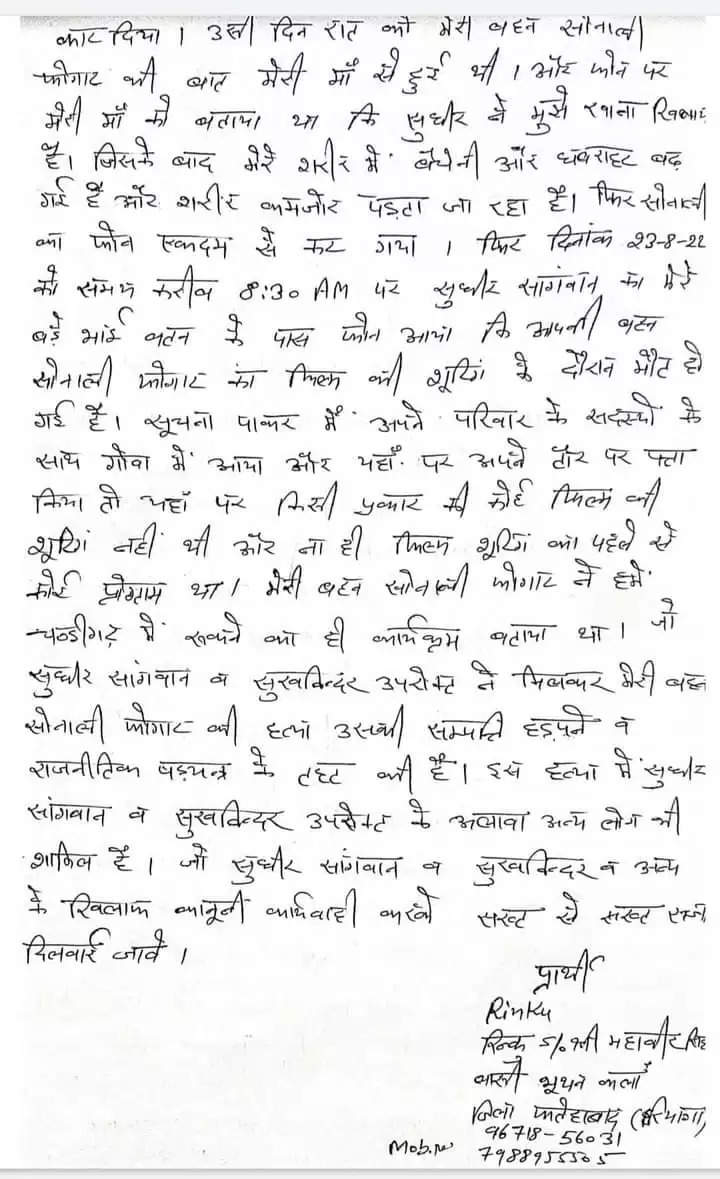 काट दिया । उसी दिन रात को मेरी बहन सोनाली
फोगाट की बात मेरी माँ से हुई थी । और फोन पर
मेरी माँ को बताया था कि सुधीर ने मुझे खाना खिलाया
है। जिसके बाद मेरे शरीर में बेचेनी और घबराहट बढ़
गई है और शरीर कमजोर पड़ता जा रहा है। फिर सोनाली
का फोन एकदम से कट गया । फिर दिनांक 23-8-22
को समय करीब 8:30 AM पर सुधीर सांगवान का मेरे
बड़े भाई वतन के पास फोन आया कि आपकी बहन
सोनाली फोगाट का फिल्म की शूटिंग के दौरान मौत हो
गई है। सूचना पाकर मैं अपने परिवार के सदस्यों के
साथ गोवा में आया और यहाँ पर अपने तौर पर पता
किया तो यहाँ पर किसी प्रकार की कोई फिल्म की
शूटिंग नहीं थी और ना ही फिल्म शूटिंग का पहले से
कोई प्रोग्राम था। मेरी बहन सोनाली फोगाट ने हमें
चण्डीगढ़ में रूकने का ही कार्यक्रम बताया था। जो
सुधीर सांगवान व सुखविन्दर उपरोक्त ने मिलकर मेरी बहन
सोनाली फोगाट की हत्या उसकी सम्पत्ति हड़पने व
राजनीतिक षड़यन्त्र के तहत की है। इस हत्या में सुधीर
सांगवान व सुखविन्दर उपरोक्त के अलावा अन्य लोग भी
शामिल है । जो सुधीर सांगवान व सुखविन्दर व अन्य
के खिलाफ कानूनी कार्यवाही करके सख्त से सख्त सजा
दिलवाई जावे ।
प्रार्थी
Rinku
रिन्कू S/o श्री महावीर सिंह
वासी भूथन कलाँ
जिला फतेहाबाद (हरियाणा)
96718-56031
Mob.no 7988955505